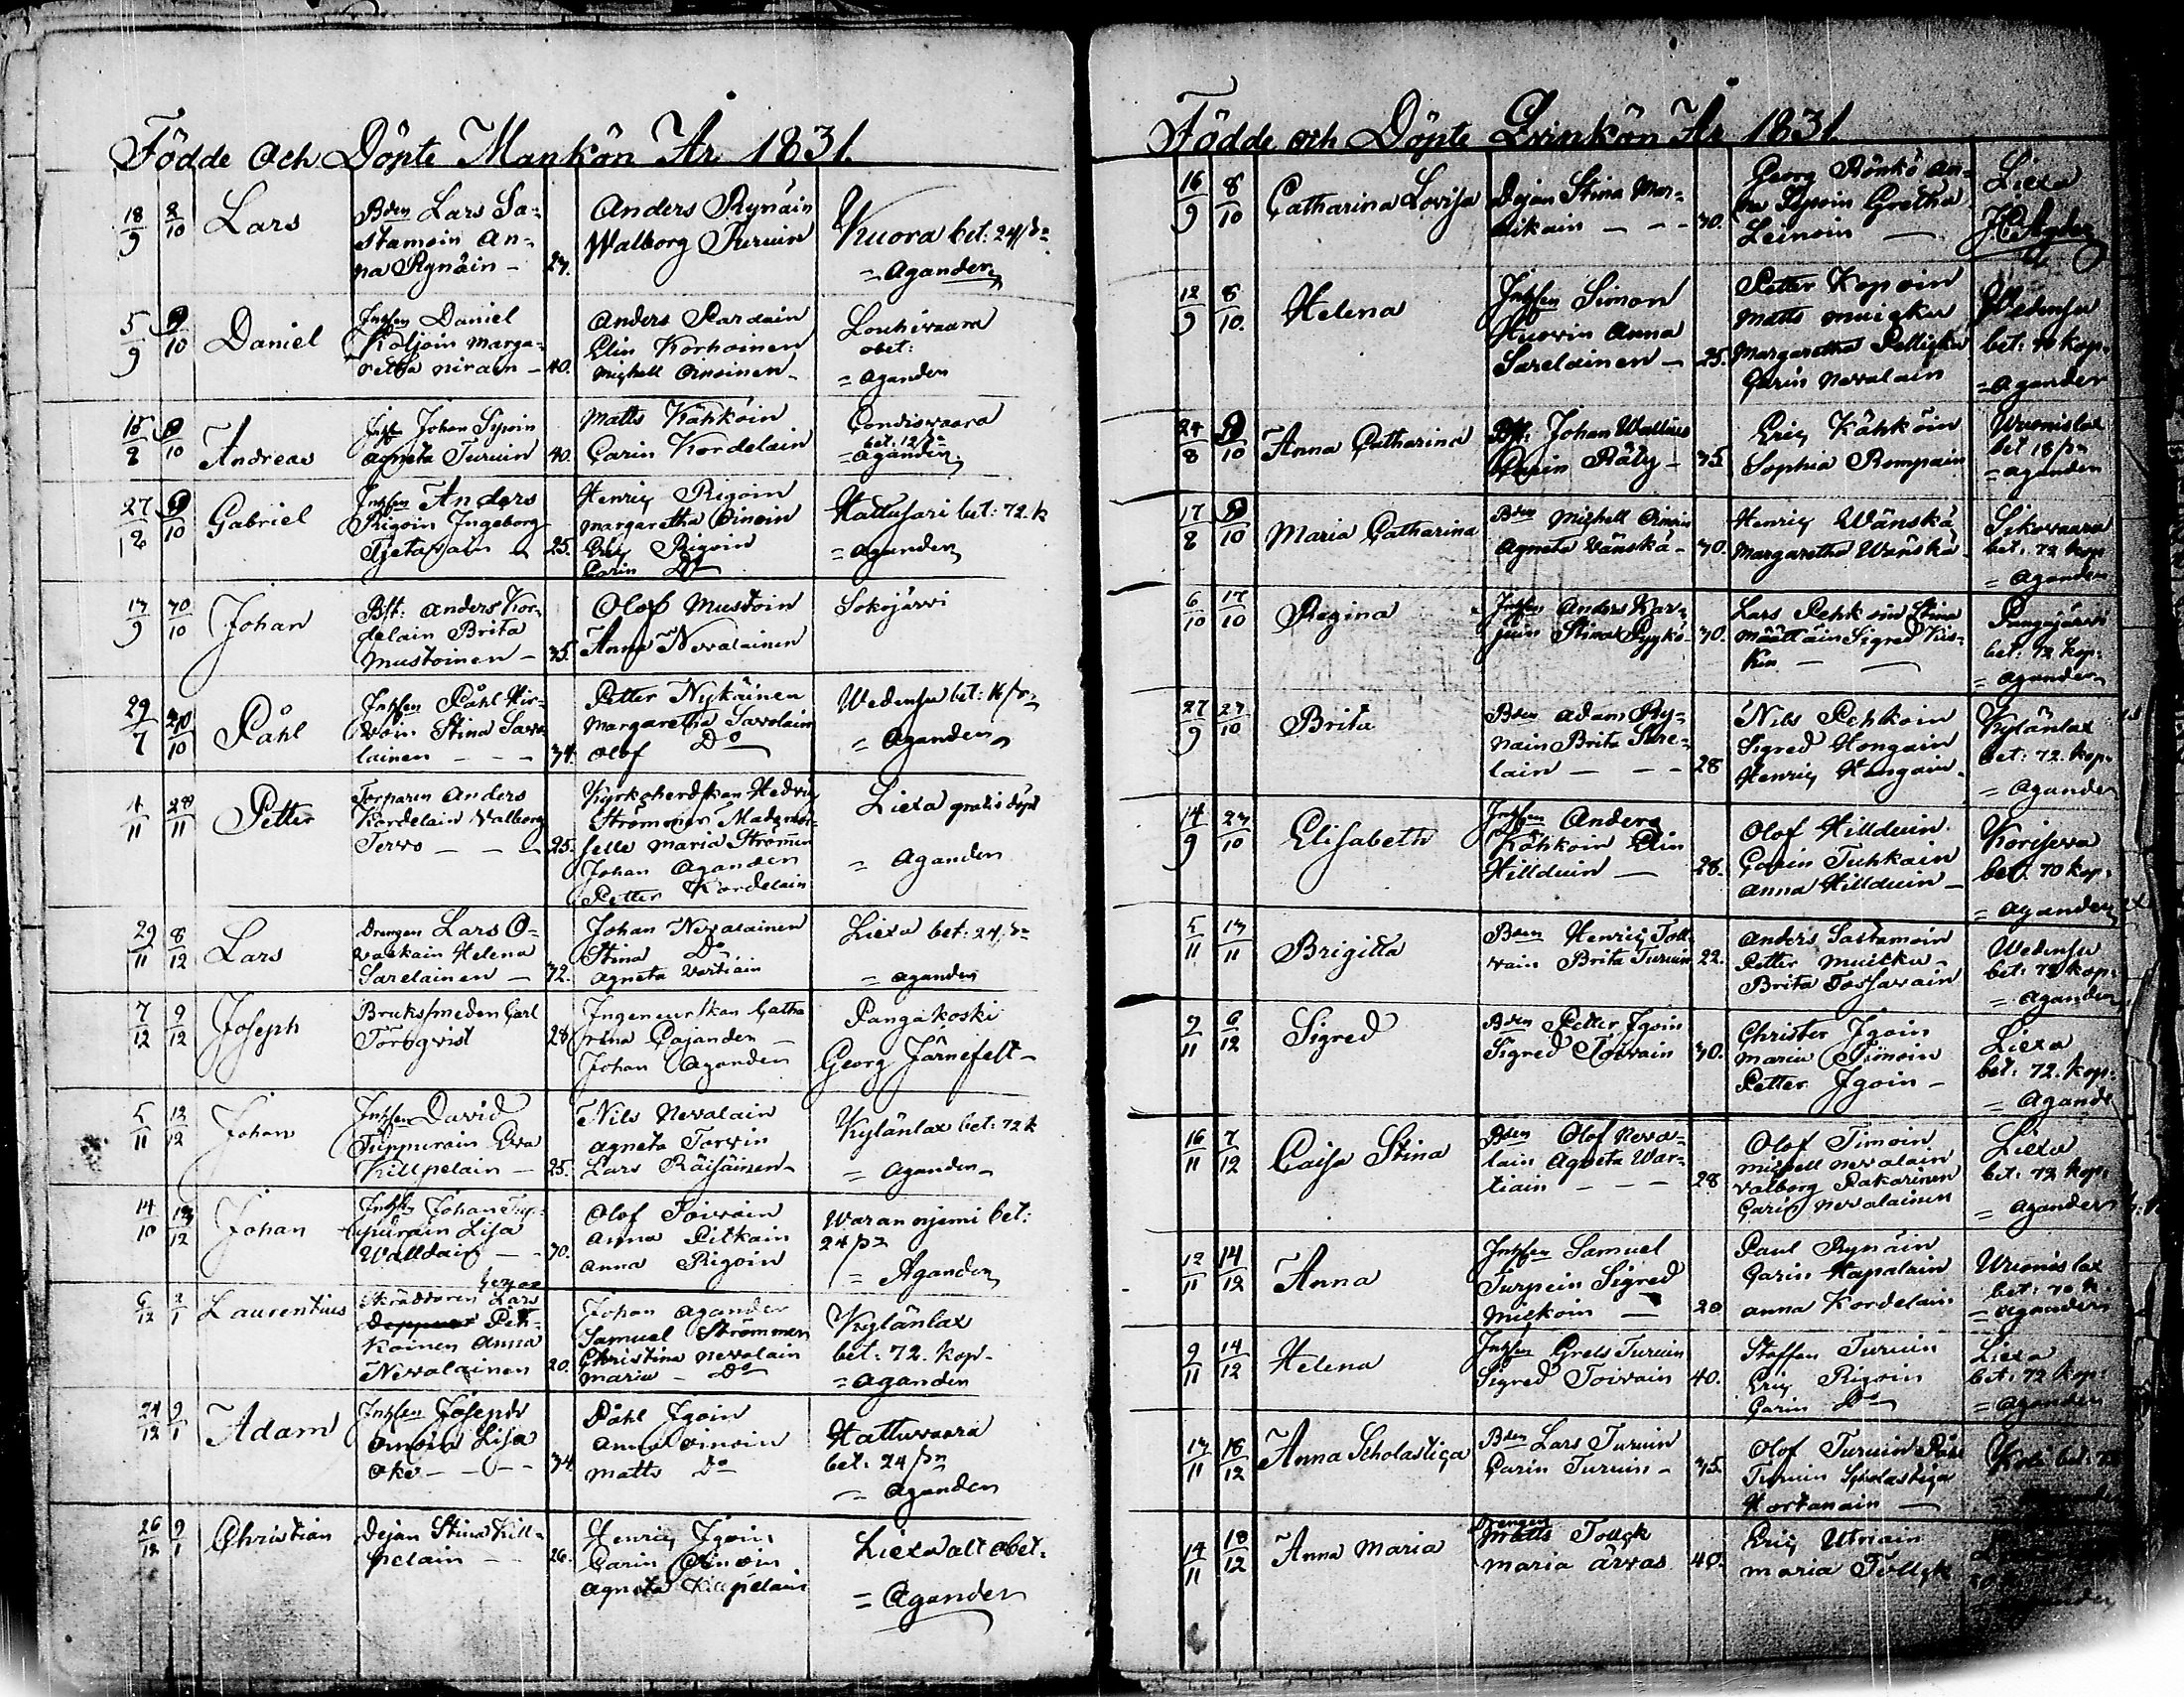 Födde och Döpte Mankön År 1831.
18/9 8/10 Lars
Bden Lars Sa-
stamoin An-
na Rynäin - 27.
Anders Rynäin
Walborg Turuin
Kuora bet: 24
= Agander
5/9 9/10 Daniel
Inhsen Daniel
Koljoin Marga-
retha - 40.
Anders Pardain
Elin Korhoinen
Michell Oinoinen
Louhiwaara
obet:
= Agander
15/8 9/10 Andreas
Johan Sipoin
Agneta Turuin 40.
Matts Kähköin
Carin Kordelain
bet: 12
= Agander
27/8 9/10 Gabriel
Inhsen Anders
Pigoin Ingeborg
25.
Henric Pigoin
Margaretha Oinoin
Eric Pigoin
Carin Do
Hattusari bet: 72. k
= Agander
17/9 10/10 Johan
Bst: Anders Kor-
delain Brita
Mustoinen - 35.
Olof Mustoin
Anna Nevalainen
Sokojärvi
29/7 20/10 Påhl
Inhsen Påhl Hir-
voin Stina Savo-
lainen - - - 34.
Petter Nykäinen
Margaretha Savolain
Olof Do
Wedensu bet:
= Agander
4/11 28/11 Petter
Torparen Anders
Kordelain Valborg
Tervo - - - 25.
Kyrkoherdskan Hedvig
Strömmer Mademoi-
selle Maria Strömmer
Johan Agander
Petter Kordelain
Liexa gratis döpt
= Agander
29/11 8/12 Lars
Drengen Lars O-
vaskain Helena
Sarelainen - 32.
Johan Nevalainen
Stina Do
Agneta Vartiain
Liexa bet: 24
= Agander
7/12 9/12 Joseph
Bruksmeden Carl
Törnqvist 28
Ingeneurskan Catha
rina Cajander
Johan Agander
Pangakoski
Georg Järnefelt
5/11 12/12 Johan
Inhsen David
Tuppurain Eva
Killpelain - 25.
Nils Nevalain
Agneta Torvin
Lars Räisäinen
Kylänlax bet: 72 k
= Agander
14/10 13/12 Johan
Inhsen Johan Tup-
purain Lisa
- - 30.
Olof Toivain
Anna Pitkain
Anna Pigoin
bet:
24
= Agander
6/12 2/1 Laurentius
Skräddaren Lars
Peh-
koinen Anna
Nevalainen 20.
Johan Agander
Samuel Strömmer
Christina Nevalain
Maria - Do
Kylänlax
bet: 72. kop
= Agander
24/12 9/1 Adam
Inhsen Joseph
Oinoin Lisa
- - - 34
Påhl Igoin
Anna Oinoin
Matts Do
Hattuvaara
bet: 24
= Agander
26/12 9/1 Christian
Dejan Stina Kill-
pelain - - 26.
Henric Igoin
Carin Oinoin
Agneta Killpelain
Liexa alt obet.
= Agander
Födde och Döpte Qvinkön År 1831.
16/9 8/10 Catharina Lovisa
Dejan Stina Mar-
tikain - - - 30.
Georg Rönkö An-
na Sipoin Gretha
Leinoin
Liexa
12/9 8/10 Helena
Inhsen Simon
Huovin Anna
Sarelainen - 25.
Petter Kopoin
Matts
Margaretha
Carin Nevalain
Wedensu
bet: 70 kop.
= Agander
24/8 9/10 Anna Catharina
Bst: Johan Wallius
Carin Räty - 35
Eric Kähköin
Sophia Rompain
bet 18
= Agander
17/8 9/10 Maria Catharina
Bden Michell Oinoin
Agneta Wänskä - 30.
Henric Wänskä
Margaretha Wänskä
Sikovaara
bet: 72 kop
= Agander
6/10 17/10 Regina
Inhsen Anders Kar-
juin Stina Pyykö - 30.
Lars Pehkoin Stina
Määttäin Sigred Kis-
kin - -
Pangajärvi
bet: 72 kop:
= Agander
27/9 27/10 Brita
Bden Adam Ry-
näin Brita Sare-
lain - - - 28
Nils Pehkoin
Sigred Hongain
Henric Hongain
Kylänlax
bet: 72. kop.
= Agander
14/9 27/10 Elisabeth
Inhsen Anders
Kähköin Elin
Hillduin - 28.
Olof Hillduin
Carin Tuhkain
Anna Hillduin
bet: 70 kop.
= Agander
5/11 17/11 Brigitta
Bden Henric Toll-
vain Brita Turuin 22.
Anders Sastamoin
Petter
Brita Tossavain
Wedensu
bet: 72 kop.
= Agander
7/11 6/12 Sigred
Bden Petter Igoin
Sigred Toivain 30.
Christer Igoin
Maria
Petter Igoin -
Liexa
bet: 72. kop.
= Agander
16/11 7/12 Caisa Stina
Bden Olof Neva-
lain Agneta War-
tiain - - - 28
Olof Timoin
Michell Nevalain
Valborg Pakarinen
Carin Nevalainen
Liexa
bet: 72 kop.
= Agander
12/11 14/12 Anna
Inhsen Samuel
Turpein Sigred
20
Paul Rynäin
Carin Hapalain
Anna Kordelain
bet: 70 k.
= Agander
9/11 14/12 Helena
Inhsen Grels Turuin
Sigred Toivain 40.
Staffan Turuin
Eric Pigoin
Carin Do
Liexa
bet: 72 kop.
= Agander
17/11 18/12 Anna Scholastica
Bden Lars Turuin
Carin Turuin - 35
Olof Turuin
Turuin Scholastica
Hortanain
Koli bet: 72
14/11 18/12 Anna Maria
Drengen
Matts Tollck
Maria Ärvas 40.
Eric
Maria Tollck